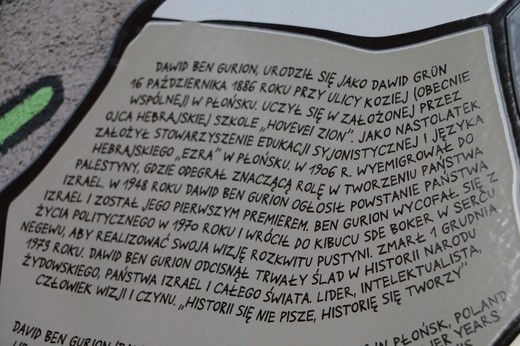 DAWID BEN GURION, URODZIŁ SIĘ JAKO DAWID GRÜN
16 PAŹDZIERNIKA 1886 ROKU PRZY ULICY KOZIEJ (OBECNIE
WSPÓLNEJ) W PŁOŃSKU. UCZYŁ SIĘ W ZAŁOŻONEJ PRZEZ
OJCA HEBRAJSKIEJ SZKOLE „HOVEVEI ZION". JAKO NASTOLATEK
ZAŁOŻYŁ STOWARZYSZENIE EDUKACJI SYJONISTYCZNEJ I JĘZYKA
HEBRAJSKIEGO „EZRA" W PŁOŃSKU. W 1906 R. WYEMIGROWAŁ DO
PALESTYNY, GDZIE ODEGRAŁ ZNACZĄCĄ ROLĘ W TWORZENIU PAŃSTWA
IZRAEL. W 1948 ROKU DAWID BEN GURION OGŁOSIŁ POWSTANIE PAŃSTWA
IZRAEL I ZOSTAŁ JEGO PIERWSZYM PREMIEREM. BEN GURION WYCOFAŁ SIĘ Z
ŻYCIA POLITYCZNEGO W 1970 ROKU I WRÓCIŁ DO KIBUCU SDE BOKER W SERCU
NEGEWU, ABY REALIZOWAĆ SWOJA WIZJĘ ROZKWITU PUSTYNI. ZMARŁ 1 GRUDNIA
1973 ROKU. DAWID BEN GURION ODCISNĄŁ TRWAŁY ŚLAD W HISTORII NARODU
ŻYDOWSKIEGO, PAŃSTWA IZRAEL I CAŁEGO ŚWIATA. LIDER, INTELEKTUALISTA,
CZŁOWIEK WIZJI I CZYNU. „HISTORII SIĘ NIE PISZE, HISTORIĘ SIĘ TWORZY"
DAVID BEN GURION IN PŁOŃSK, POLAND
YEARS